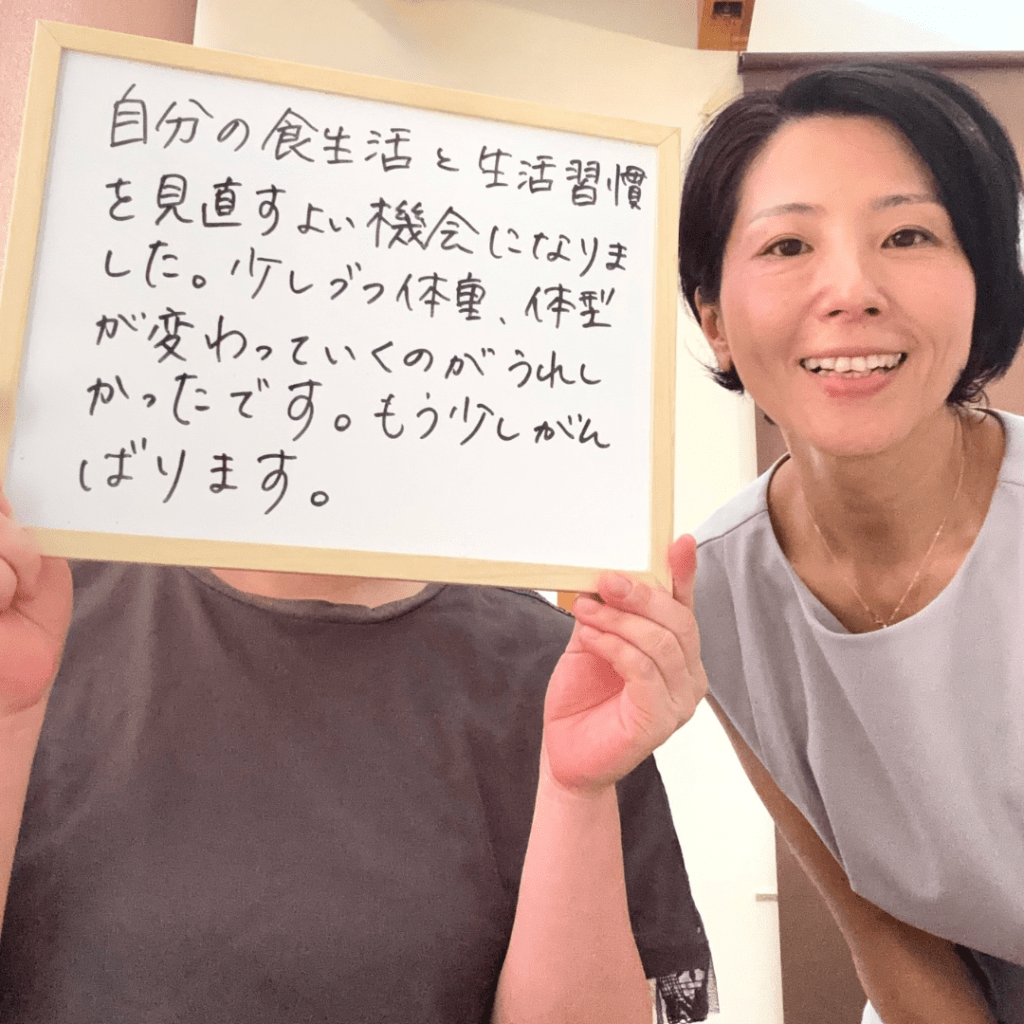 自分の食生活と生活習慣
を見直すよい機会になりま
した。少しづつ体重、体型
が変わっていくのがうれし
かったです。もう少しがん
ばります。